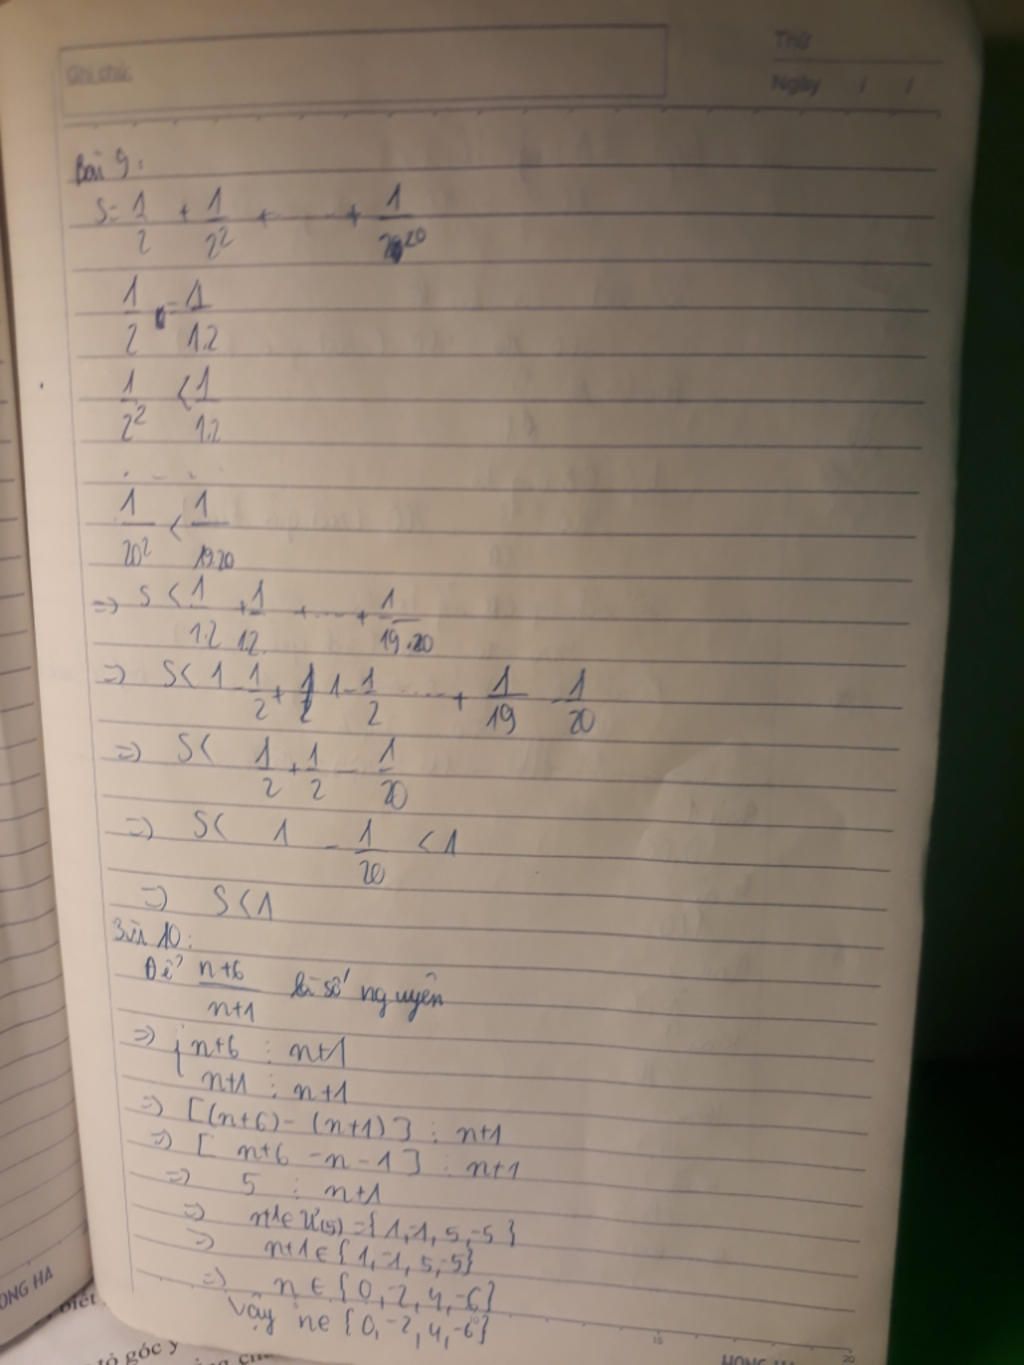 Ghi chú:
Thứ
Ngày / /
Bài 9:
S = 1/2 + 1/2² + ...... + 1/2²⁰
1/2 = 1/1.2
1/2² < 1/1.2
. .. .
1/20² < 1/19.20
=> S < 1/1.2 + 1/1.2 + ..... + 1/19.20
=> S < 1 - 1/2 + 1 - 1/2 ..... + 1/19 - 1/20
=> S < 1/2 + 1/2 - 1/20
=> S < 1 - 1/20 < 1
=> S < 1
Bài 10:
Để n+6/n+1 là số nguyên
=> { n+6 ⋮ n+1
n+1 ⋮ n+1
=> [(n+6) - (n+1)] ⋮ n+1
=> [ n+6 - n - 1 ] ⋮ n+1
=> 5 ⋮ n+1
=> n+1 ∈ Ư(5) = {1, -1, 5, -5}
=> n+1 ∈ {1, -1, 5, -5}
=> n ∈ {0, -2, 4, -6}
Vậy n ∈ {0, -2, 4, -6}
15
20
ONG HA
HONG HA
biết
tỏ góc y